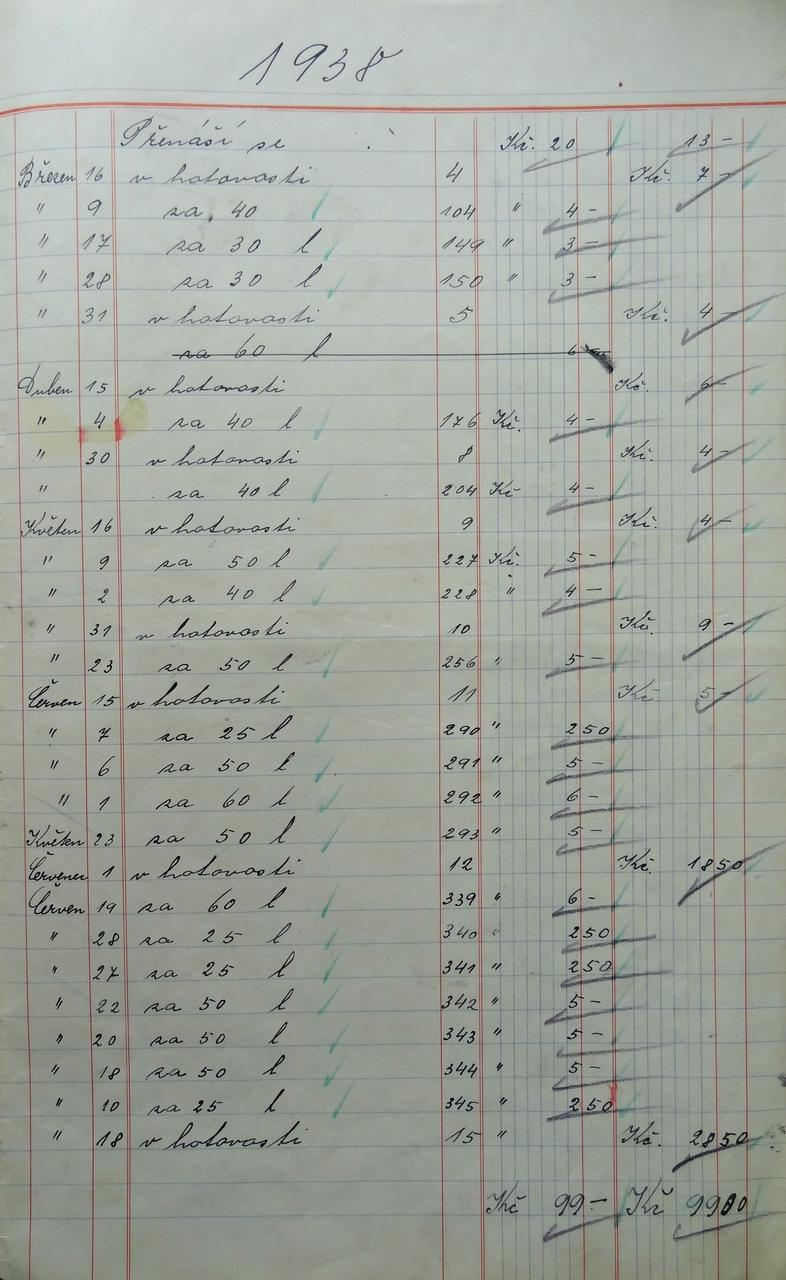 1938
Přenáší se Kč. 20 13 -
Březen 16 v hotovosti 4 Kč. 7 -
" 9 za 40 104 " 4 -
" 17 za 30 l 149 " 3 -
" 28 za 30 l 150 " 3 -
" 31 v hotovosti 5 Kč. 4 -
za 60 l 6
Duben 15 v hotovosti Kč. 6 -
" 4 za 40 l 176 Kč. 4 -
" 30 v hotovosti 8 Kč. 4 -
" za 40 l 204 Kč 4 -
Květen 16 v hotovosti 9 Kč. 4 -
" 9 za 50 l 227 Kč. 5 -
" 2 za 40 l 228 " 4 -
" 31 v hotovosti 10 Kč. 9 -
" 23 za 50 l 256 " 5 -
Červen 15 v hotovosti 11 Kč. 5 -
" 7 za 25 l 290 " 250
" 6 za 50 l 291 " 5 -
" 1 za 60 l 292 " 6 -
Květen 23 za 50 l 293 " 5 -
Červenec 1 v hotovosti 12 Kč. 1850
Červen 19 za 60 l 339 " 6 -
" 28 za 25 l 340 " 250
" 27 za 25 l 341 " 250
" 22 za 50 l 342 " 5 -
" 20 za 50 l 343 " 5 -
" 18 za 50 l 344 " 5 -
" 10 za 25 l 345 " 250
" 18 v hotovosti 15 " Kč. 2850
Kč 99 - Kč 9900